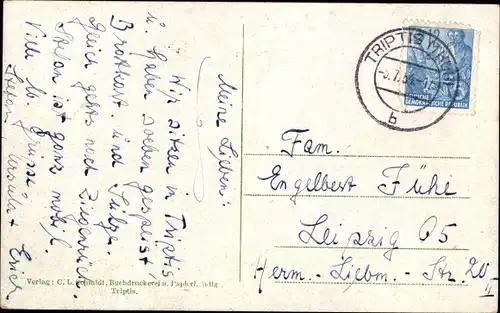 Meine Lieben!
Wir sitzen in Triptis
u. haben soeben gespeist,
Bratkart. und Sülze.
Gleich gehts nach Ziegenrück.
Stefan ist ganz mobil.
Viele lb. Grüsse
Stefan, Ursula + Erich
Verlag: C. L. Schmidt, Buchdruckerei u. Papierhdlg.
Triptis.
TRIPTIS
b
DEUTSCHE
DEMOKRATISCHE REPUBLIK
Fam.
Engelbert Fühe
Leipzig O5
Herm.-Liebm.-Str. 20 II